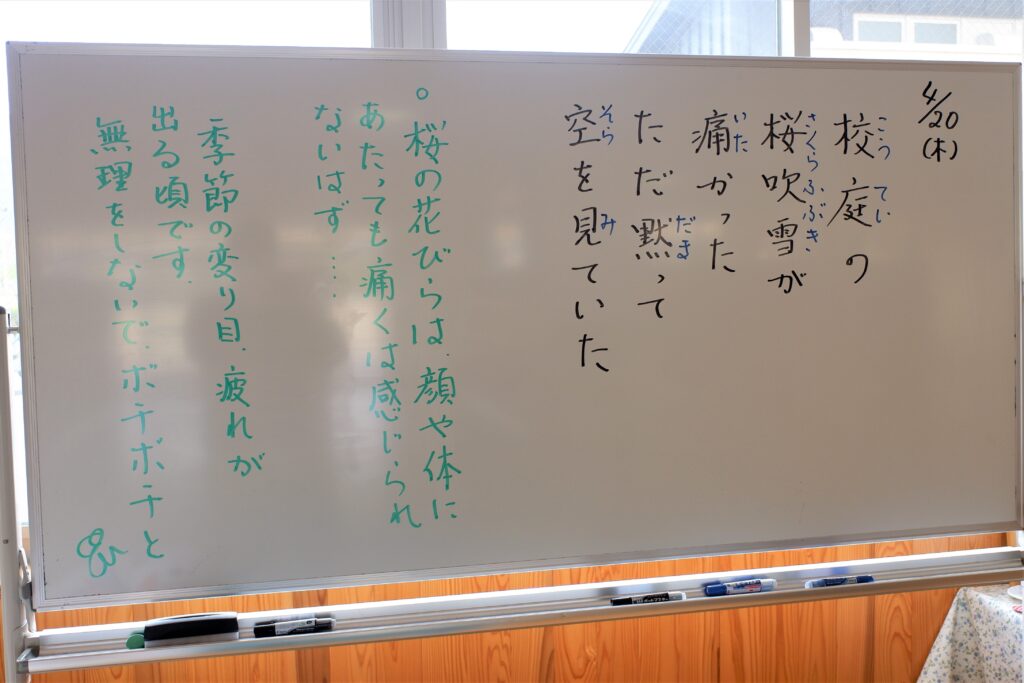 4/20
(木)
校庭の
こうてい
桜吹雪が
さくらふぶき
痛かった
いた
ただ黙って
だま
空を見ていた
そら み
。桜の花びらは、顔や体に
あたっても痛くは感じられ
ないはず……
季節の変り目、疲れが
出る頃です。
無理をしないで、ボチボチと